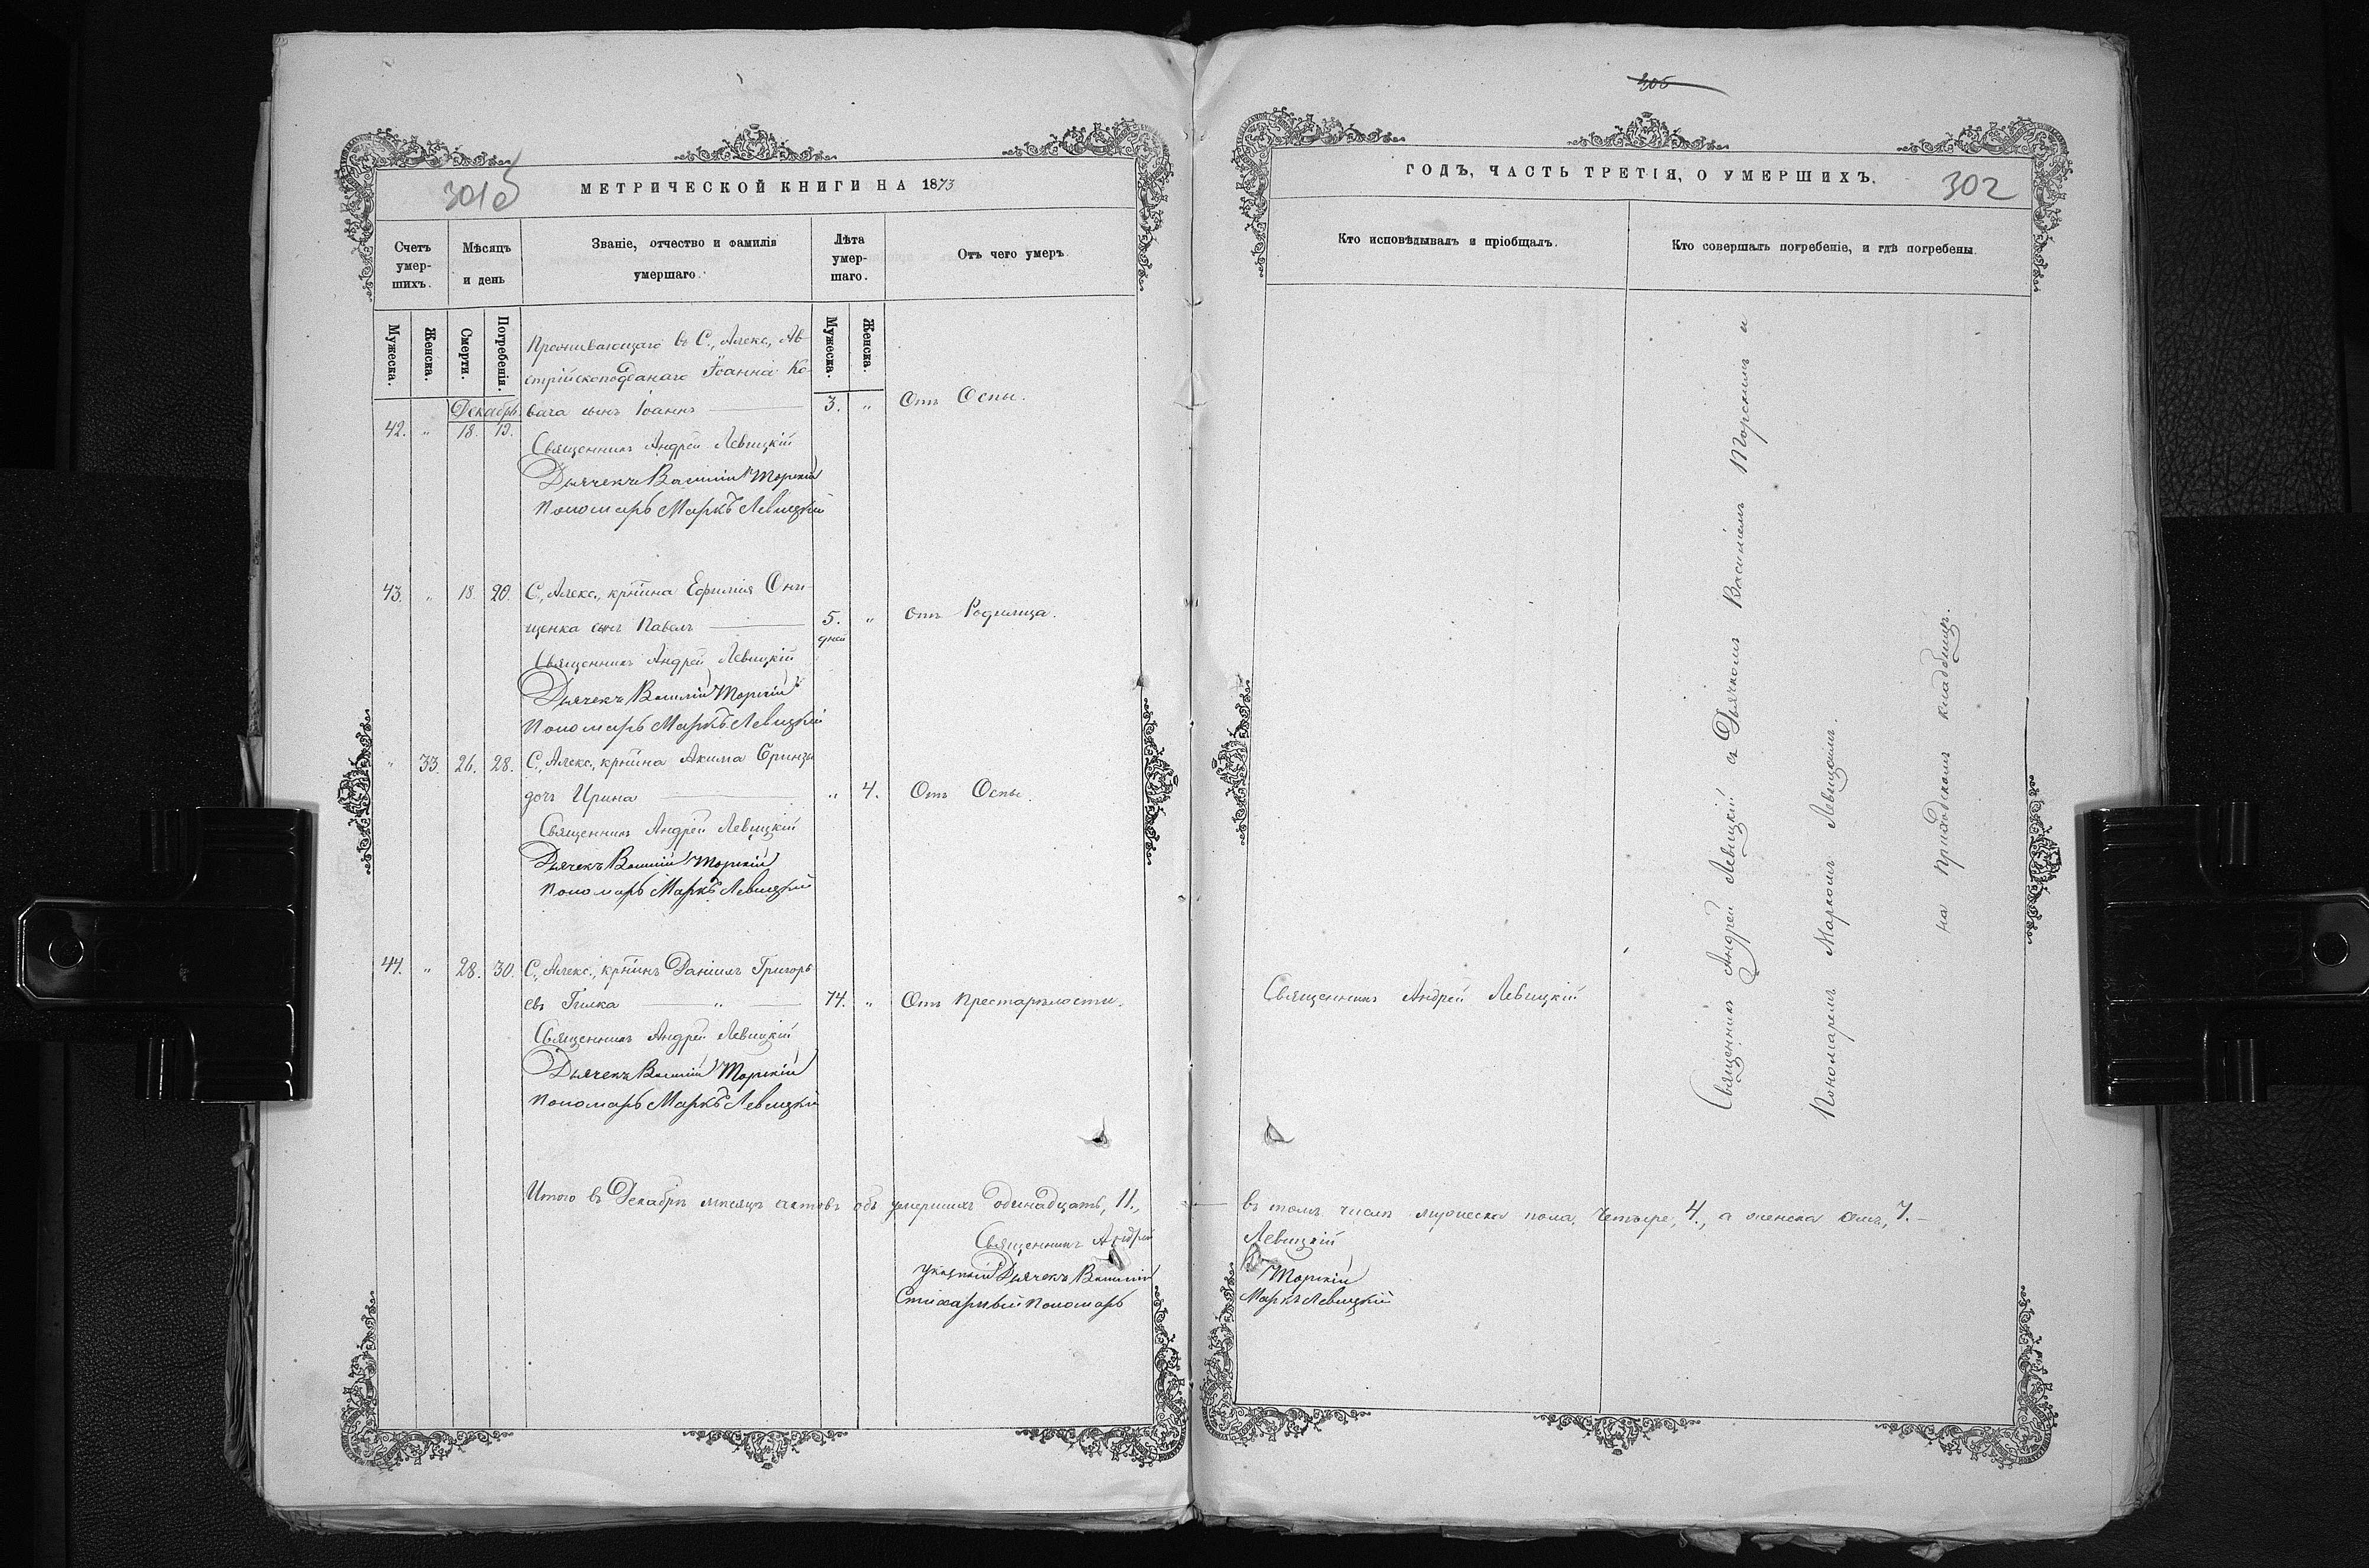 301 об
МЕТРИЧЕСКОЙ КНИГИ НА 1873
Счетъ умер-шихъ.
Мѣсяцъ и день
Званіе, отчество и фамилія умершаго.
Лѣта умер-шаго.
Отъ чего умеръ.
Мужеска.
Женска.
Смерти.
Погребенія.
Мужеска.
Женска.
Проживающаго въ С., Алекс., Ав
стрійскоподданаго Іоанна Ко-
Декабрь. вача сынъ Іоаннъ 3. „ Отъ Оспы.
42. „ 18. 19.
Священникъ Андрей Левицкій
Дьячекъ Василій Торскій
Пономарь Маркъ Левицкій
43. „ 18. 20. С., Алекс., крѣтина Ефимія Они-
щенка сынъ Павелъ 5. дней „ Отъ Родимца.
Священникъ Андрей Левицкій
Дьячекъ Василій Торскій
Пономарь Маркъ Левицкій
„ 33. 26. 28. С., Алекс., крѣтина Акима
дочь Ирина „ 4. Отъ Оспы.
Священникъ Андрей Левицкій
Дьячекъ Василій Торскій
Пономарь Маркъ Левицкій
44. „ 28. 30. С., Алекс., крѣтинъ Даніилъ Григорь
евъ Гилка „ 74. „ Отъ престарѣлости.
Священникъ Андрей Левицкій
Дьячекъ Василій Торскій
Пономарь Маркъ Левицкій
Итого въ Декабрѣ мѣсяцѣ актовъ объ умершихъ одинадцать, 11.,
Священникъ Андрей
Указный Дьячекъ Василій
Стихарный Пономарь
306
ГОДЪ, ЧАСТЬ ТРЕТІЯ, О УМЕРШИХЪ.
302
Кто исповѣдывалъ и пріобщалъ.
Кто совершалъ погребеніе, и гдѣ погребены.
Священникъ Андрей Левицкій
Священникъ Андрей Левицкій съ Дьячкомъ Василіемъ Торскимъ и
Пономаремъ Маркомъ Левицкимъ.
на Приходскомъ кладбищѣ.
въ томъ числѣ мужеска пола, четыре, 4., а женска семь, 7.
Левицкій
Торскій
Маркъ Левицкій